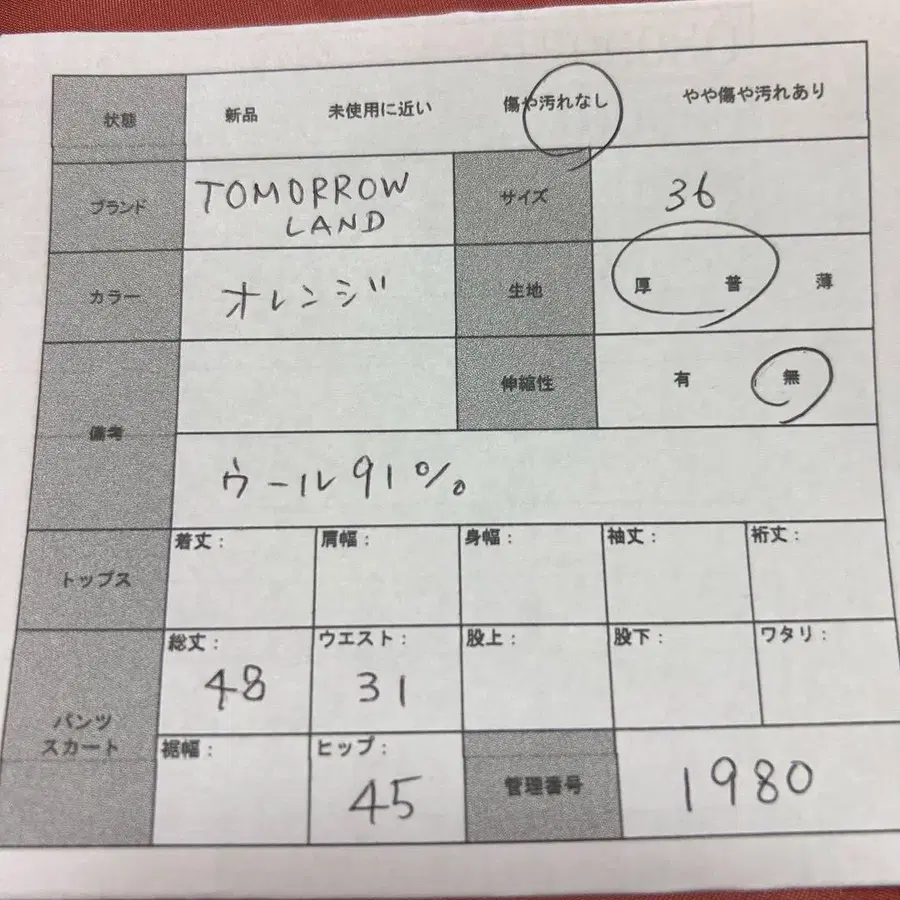 状態 新品 未使用に近い 傷や汚れなし やや傷や汚れあり
ブランド TOMORROW LAND サイズ 36
カラー オレンジ 生地 厚 普 薄
備考 伸縮性 有 無
ウール91%
トップス 着丈: 肩幅: 身幅: 袖丈: 裄丈:
パンツ スカート 総丈: 48 ウエスト: 31 股上: 股下: ワタリ:
裾幅: ヒップ: 45 管理番号 1980